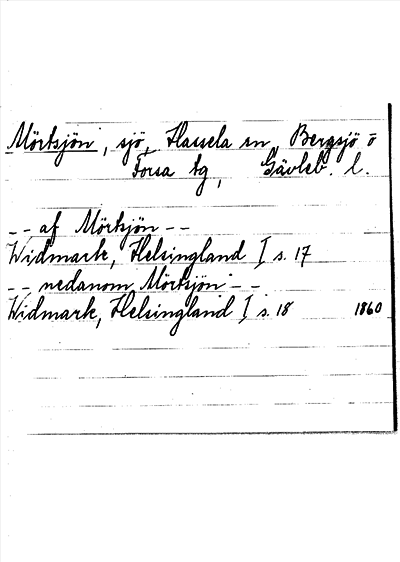 Mörtsjön, sjö, Hassela sn, Bergsjö o
Forsa tg, Gävleb. l.
-- af Mörtsjön --
Widmark, Helsingland I s. 17
-- nedanom Mörtsjön --
Widmark, Helsingland I s. 18 1860